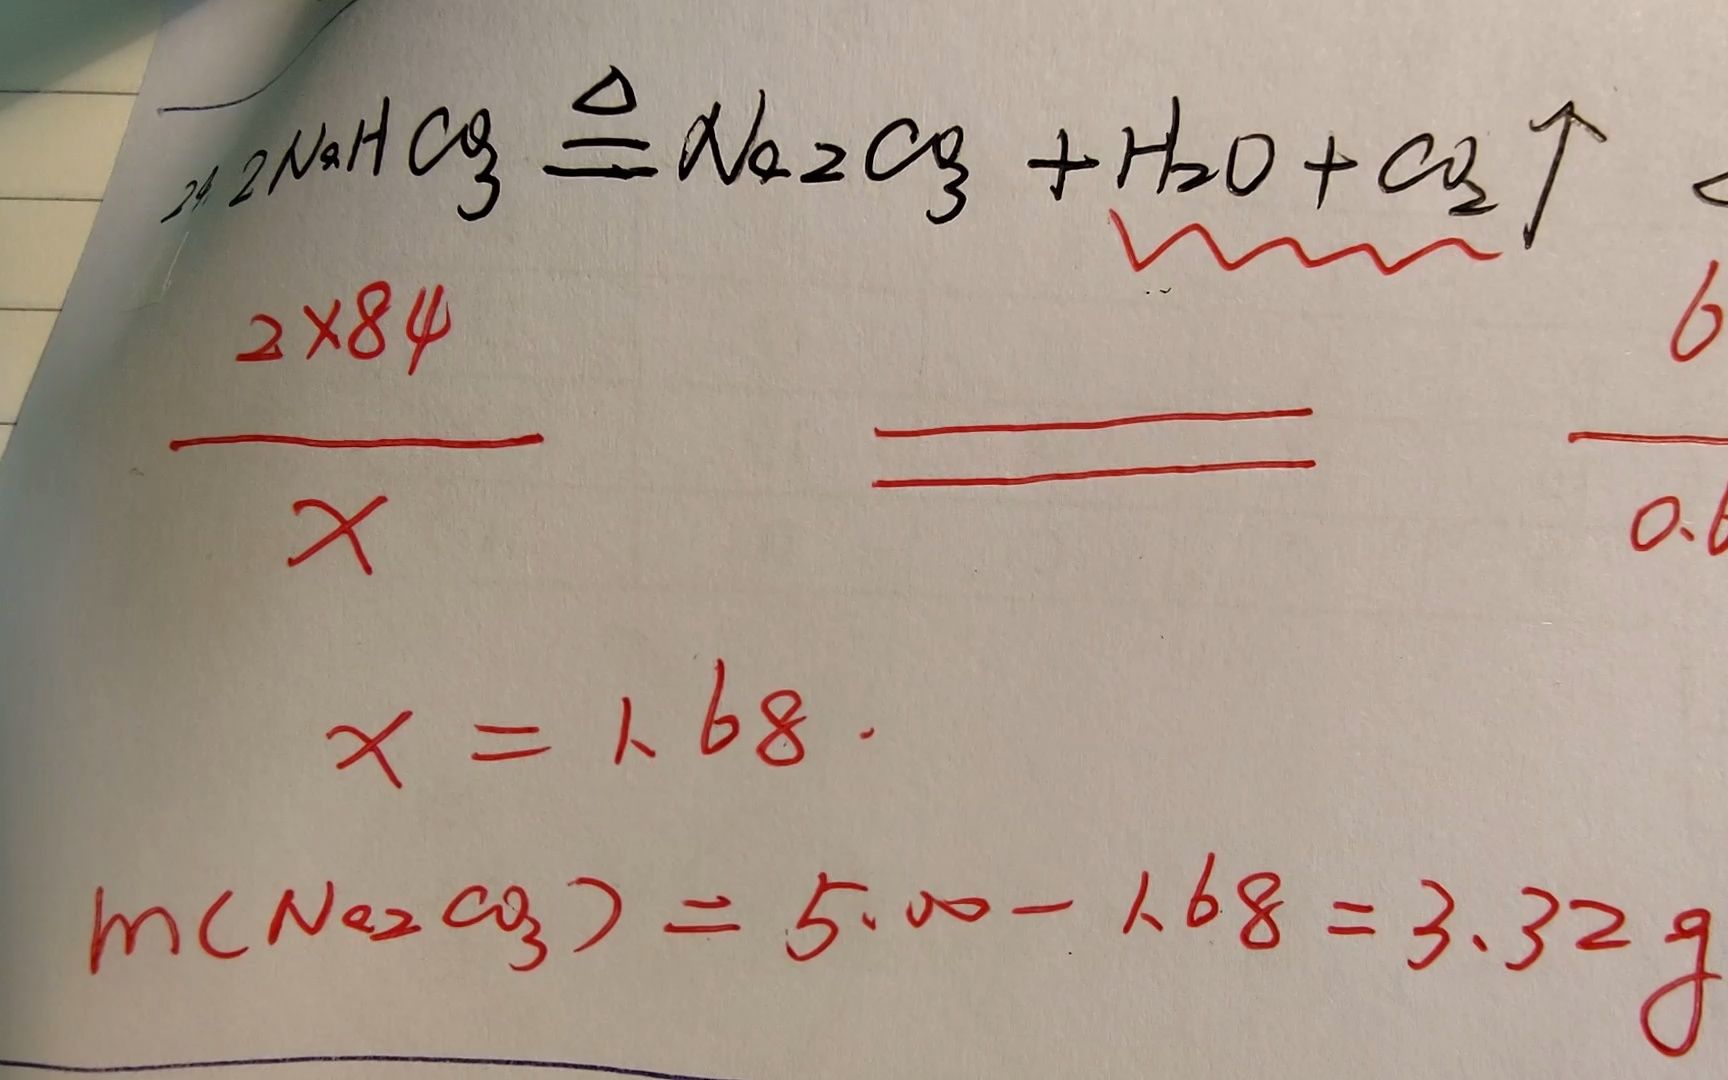 2NaHCO₃ ≜ Na₂CO₃ + H₂O + CO₂↑
2×84 6
x 0.6
x = 1.68.
m(Na₂CO₃) = 5.00 - 1.68 = 3.32g